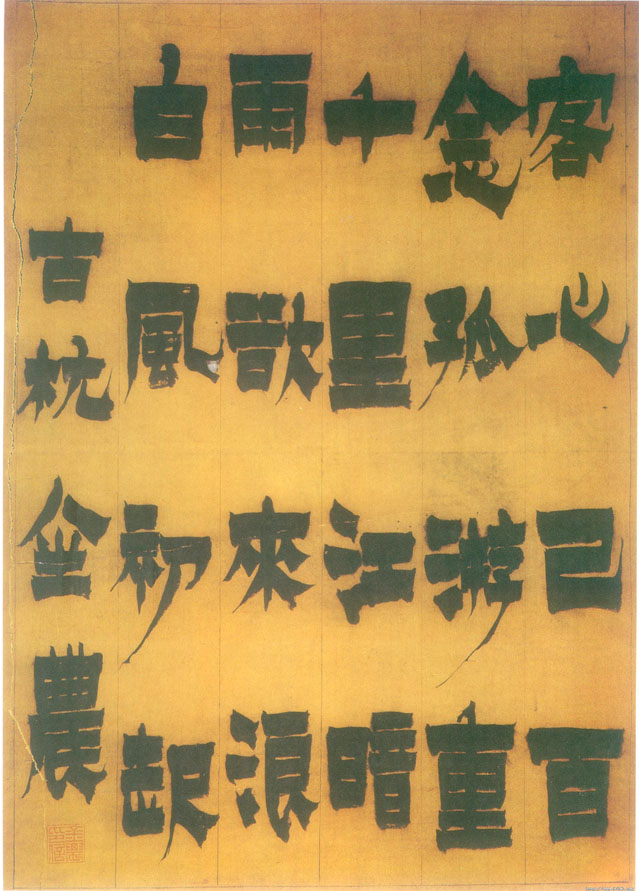 客心已百
念孤游重
千里江暗
雨欲來浪
白風初起
古杭金農